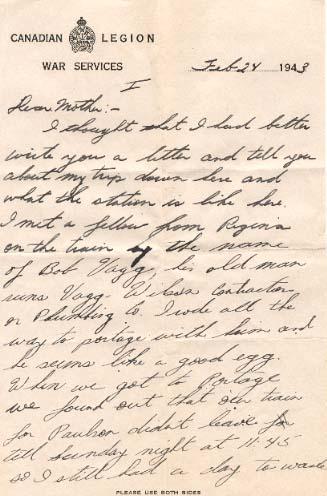 CANADIAN LEGION
WAR SERVICES
Feb 24 1943
I
Dear Mother:-
I thought that I had better
write you a letter and tell you
about my trip down here and
what the station is like here.
I met a fellow from Regina
on the train by the name
of Bob Vagg, his old man
runs Vagg. Wilson Contractor
or Plumbing Co. I rode all the
way to portage with him and
he seems like a good egg.
When we got to Portage
we found out that our train
for Paulson didnt leave
till sunday night at 11:45
so I still had a day to waste
PLEASE USE BOTH SIDES